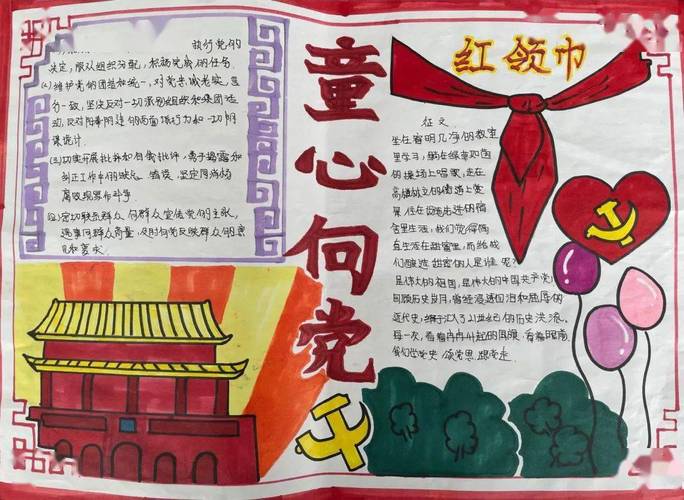 执行党的
决定,服从组织分配,积极完成的任务
维护党的团结和统一,对党忠诚老实,言
行一致,坚决反对一切派别组织和小集团活
动,反对阳奉阴违的两面派行为和一切阴
谋诡计
(三)切实开展批评和自我批评,勇于揭露和
纠正工作中的缺点、错误,坚定同消极
腐败现象作斗争
密切联系群众,向群众宣传党的主张,
遇事同群众商量,及时向党反映群众的意
见和要求
童心向党
红领巾
征文
坐在窗明几净的教室
里学习,躺在绿草如茵
的操场上唱歌,走在
高楼林立的街道上赏
景,住在设施先进的宿
舍里生活,我们觉得简
直生活在甜窝里,而给我
们酿造甜密的人是谁呢?
是伟大的祖国,是伟大的中国共产党
回顾历史岁月,曾经浸透困苦和屈辱的
近代史,终于汇入了21世纪的历史洪流。
每一次,看着冉冉升起的国旗,看着
我们学党史 颂党恩 跟党走